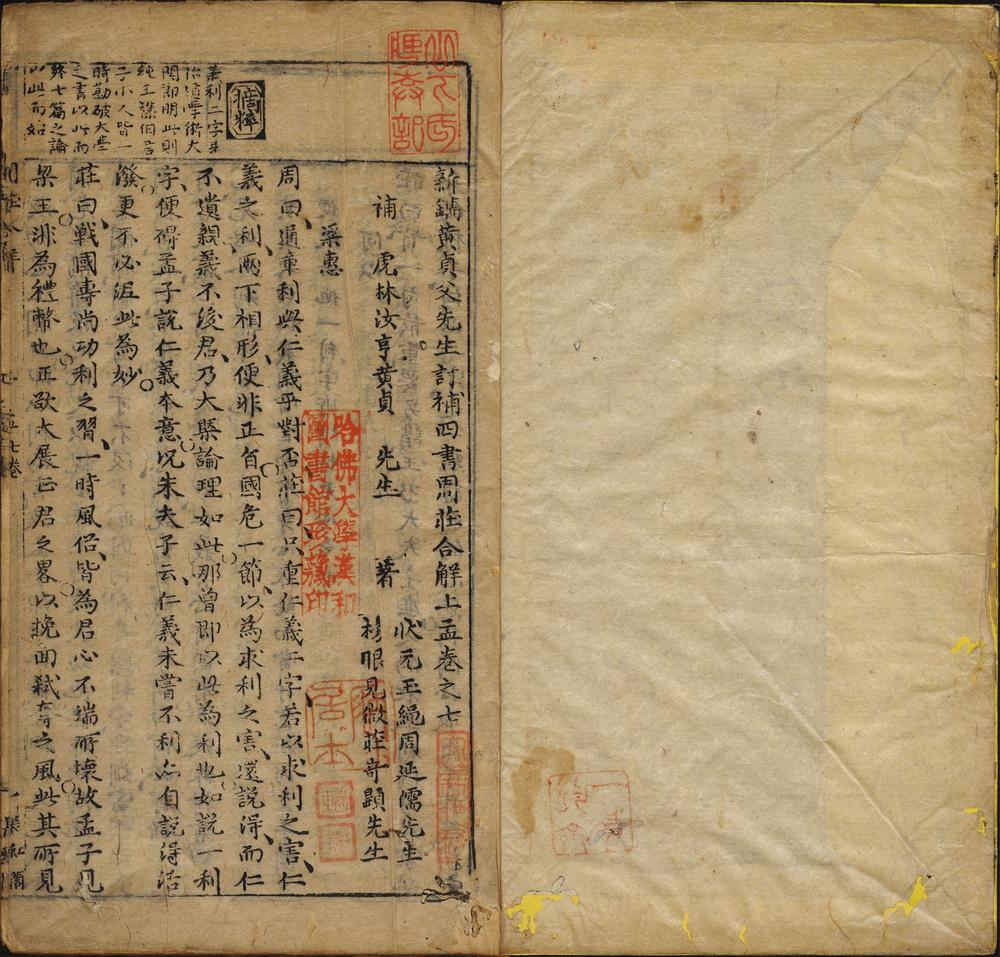 新鐫黃貞父先生訂補四書周莊合解上孟卷之七
狀元玉繩周延儒先生
補 虎林汝亨黃貞 先生 著
榜眼見微莊奇顯先生
梁惠
周曰通章利與仁義乎對否莊曰只重仁義二字若以求利之害仁
義之利兩下相形便非正旨國危一節以為求利之害還說得而仁
不遺親義不後君乃大槩論理如此那曾即以此為利也如說一利
字便碍孟子說仁義本意况朱夫子云仁義未嘗不利亦自說得活
潑更不必泥此為妙
莊曰戰國專尚功利之習一時風俗皆為君心不端所壞故孟子見
梁王非為禮幣也正欲大展正君之畧以挽回弑奪之風此其所見
義利二字
治道學術大
關即明此則
純王
子小人皆一
時勘破大學
之書以此而
終七篇之論
以此而始
哈佛大學漢和
圖書館珍藏印